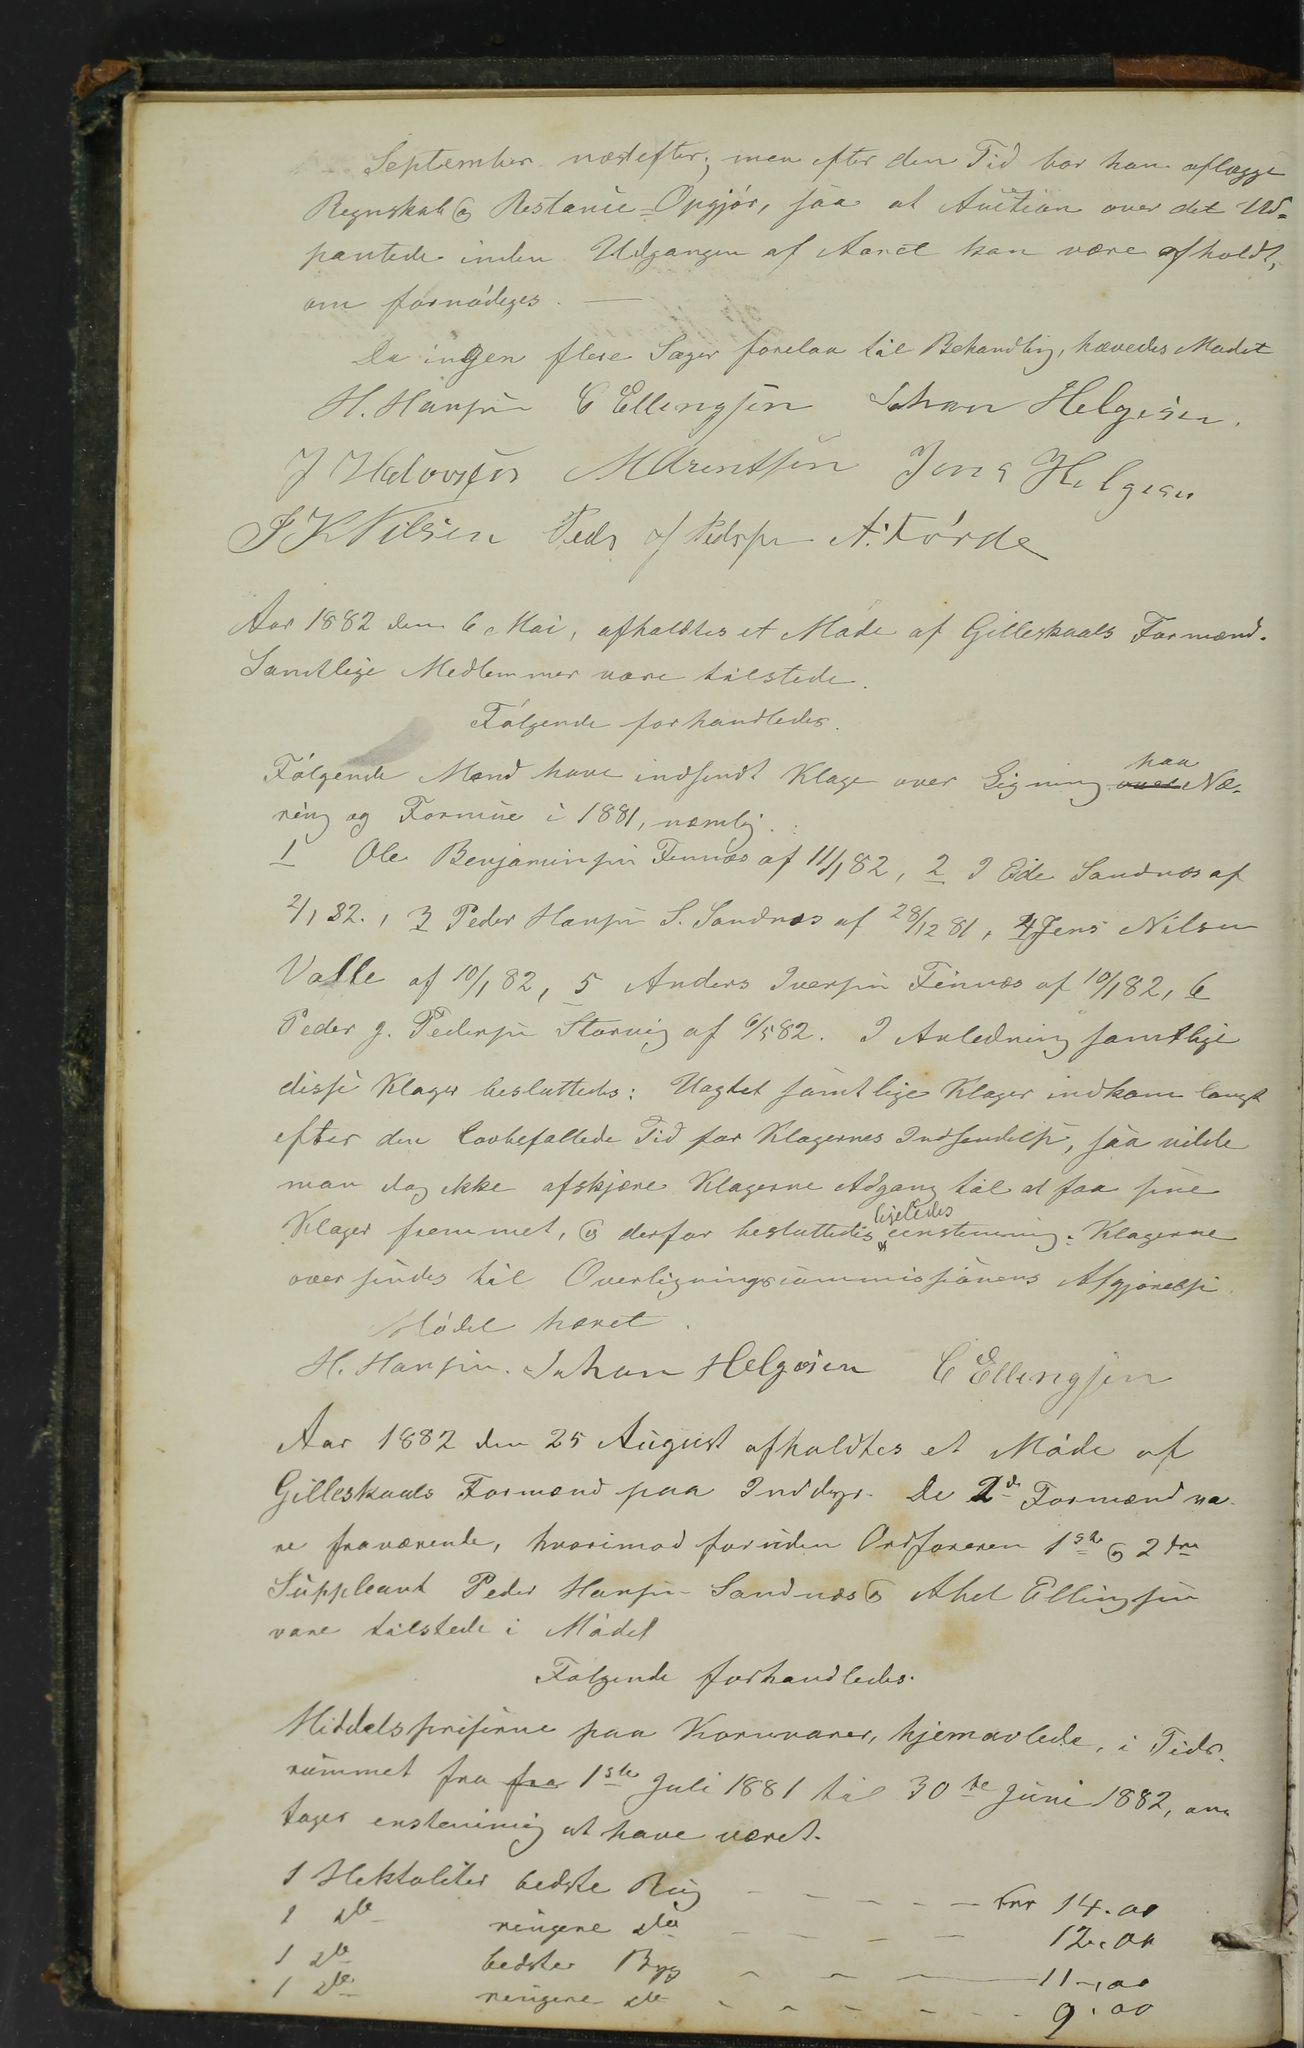 September næstefter; men efter den Tid bør han aflægge
Regnskab og Restance-Opgjør, saa at Auction over det Ud-
pantede inden Udgangen af Aaret kan være afholdt,
om fornødeges. —
Da ingen flere Sager forelaa til Behandling, hævedes Mødet
H. Hansen C Ellingsen Johan Helgesen.
J Halvorsen M Arentsen Jens Helgesen
J K Nilsen Peder J Pedersen A. Førde
Aar 1882 den 6 Mai, afholdtes et Møde af Gilleskaals Formænd.
Samtlige Medlemmer vare tilstede.
Følgende forhandledes.
Følgende Mænd have indsendt Klage over Ligning over paa Næ-
ring og Formue i 1881, nemlig:
1 Ole Benjaminsen Finnæs af 11/1 82, 2 I Eide Sandnæs af
2/1 82., 3 Peder Hansen S. Sandnæs af 28/12 81, 4 Jens Nilsen
Valle af 10/1 82, 5 Anders Iversen Finnæs af 10/1 82, 6
Peder J. Pedersen Storvig af 6/5 82. I Anledning samtlige
disse Klager besluttedes: Uagtet samtlige Klager indkom langt
efter den lovbefallede Tid for Klagernes Indsendelse, saa vilde
man dog ikke afskjære Klagerne Adgang til at faa sine
Klager fremmet, og derfor besluttedes ligeledes eenstemmig: Klagerne
oversendes til Overligningscommissionens Afgjørelse.
Mødet hævet.
H. Hansen. Johan Helgesen C Ellingsen
Aar 1882 den 25 August afholdtes et Møde af
Gilleskaals Formænd paa Inddyr. De 2de Formænd va-
re fraværende, hvorimod foruden Ordføreren 1ste og 2den
Suppleant Peder Hansen Sandnæs og Abel Ellingsen
vare tilstede i Mødet
Følgende forhandledes.
Middelspriserne paa Kornvarer, hjemavlede, i Tids-
rummet fra fra 1ste Juli 1881 til 30te Juni 1882, an-
tages enstemmig at have været.
1 Hektoliter bedste Rug - - - - - Kr 14.00
1 do ringere do - - - - 12.00
1 do bedste Byg - - - 11.00
1 do ringere do - - - - - 9.00